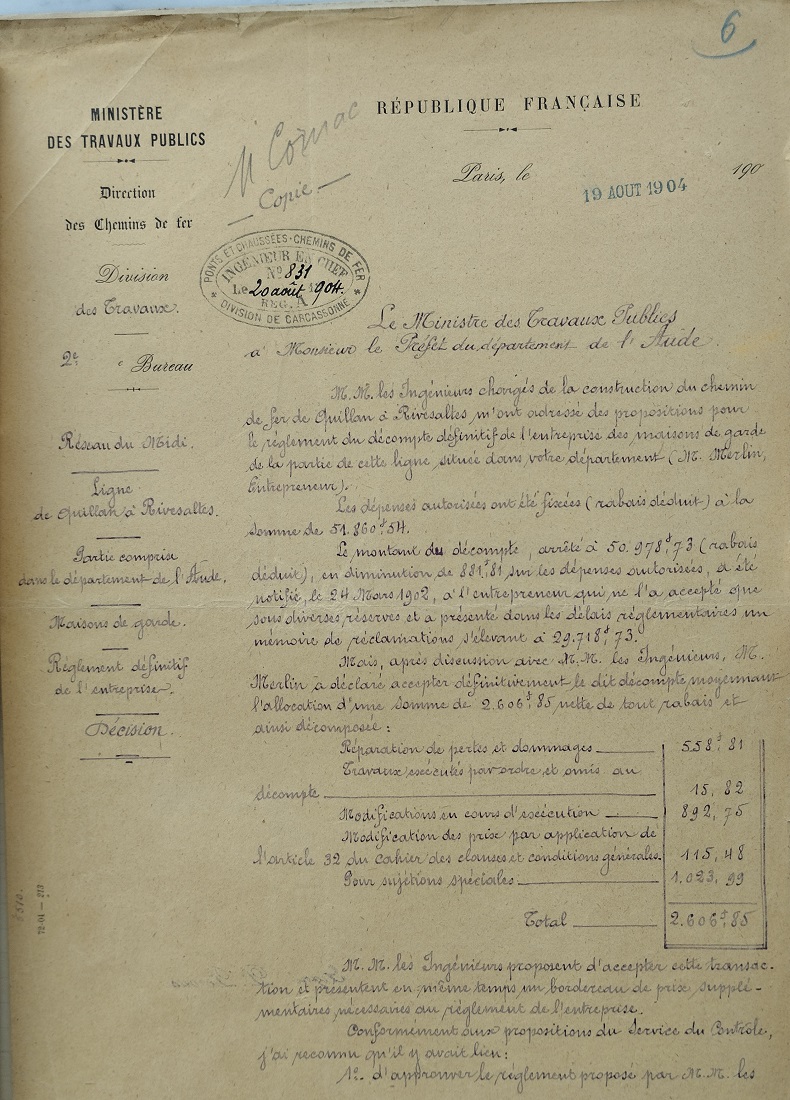 6
MINISTÈRE
DES TRAVAUX PUBLICS
Direction
des Chemins de fer
Division
des Travaux.
2e Bureau
Réseau du Midi.
Ligne
de Quillan à Rivesaltes.
Partie comprise
dans le département de l'Aude.
Maisons de garde.
Réglement définitif
de l'entreprise.
Décision.
Copie
RÉPUBLIQUE FRANÇAISE
Paris, le 19 AOUT 1904 190
PONTS ET CHAUSSÉES - CHEMINS DE FER
INGÉNIEUR EN CHEF
No 831
Le 20 août 1904.
REG. A
DIVISION DE CARCASSONNE
Le Ministre des Travaux Publics
à Monsieur le Préfet du département de l'Aude.
M.M. les Ingénieurs chargés de la construction du chemin
de fer de Quillan à Rivesaltes m'ont adressé des propositions pour
le réglement du décompte définitif de l'entreprise des maisons de garde
de la partie de cette ligne située dans votre département (M. Merlin,
Entrepreneur).
Les dépenses autorisées ont été fixées (rabais déduit) à la
somme de 51.860f,54.
Le montant du décompte, arrêté à 50.978f,73 (rabais
déduit), en diminution de 881f,81 sur les dépenses autorisées, a été
notifié, le 24 Mars 1902, à l'entrepreneur qui ne l'a accepté que
sous diverses réserves et a présenté dans les délais réglementaires un
mémoire de réclamations s'élevant à 29.718f,73.
Mais, après discussion avec M.M. les Ingénieurs, M.
Merlin a déclaré accepter définitivement le dit décompte moyennant
l'allocation d'une somme de 2.606f,85 nette de tout rabais et
ainsi décomposée :
Réparation de pertes et dommages 558f,81
Travaux exécutés par ordre et omis au
décompte 15,82
Modifications en cours d'exécution 892,75
Modification des prix par application de
l'article 32 du cahier des clauses et conditions générales. 115,48
Pour sujétions spéciales 1.023,99
Total 2.606f,85
M.M. les Ingénieurs proposent d'accepter cette transac-
tion et présentent en même temps un bordereau de prix supplé-
mentaires nécessaires au réglement de l'entreprise.
Conformément aux propositions du Service du Contrôle,
j'ai reconnu qu'il y avait lieu :
1º. d'approuver le réglement proposé par M.M. les